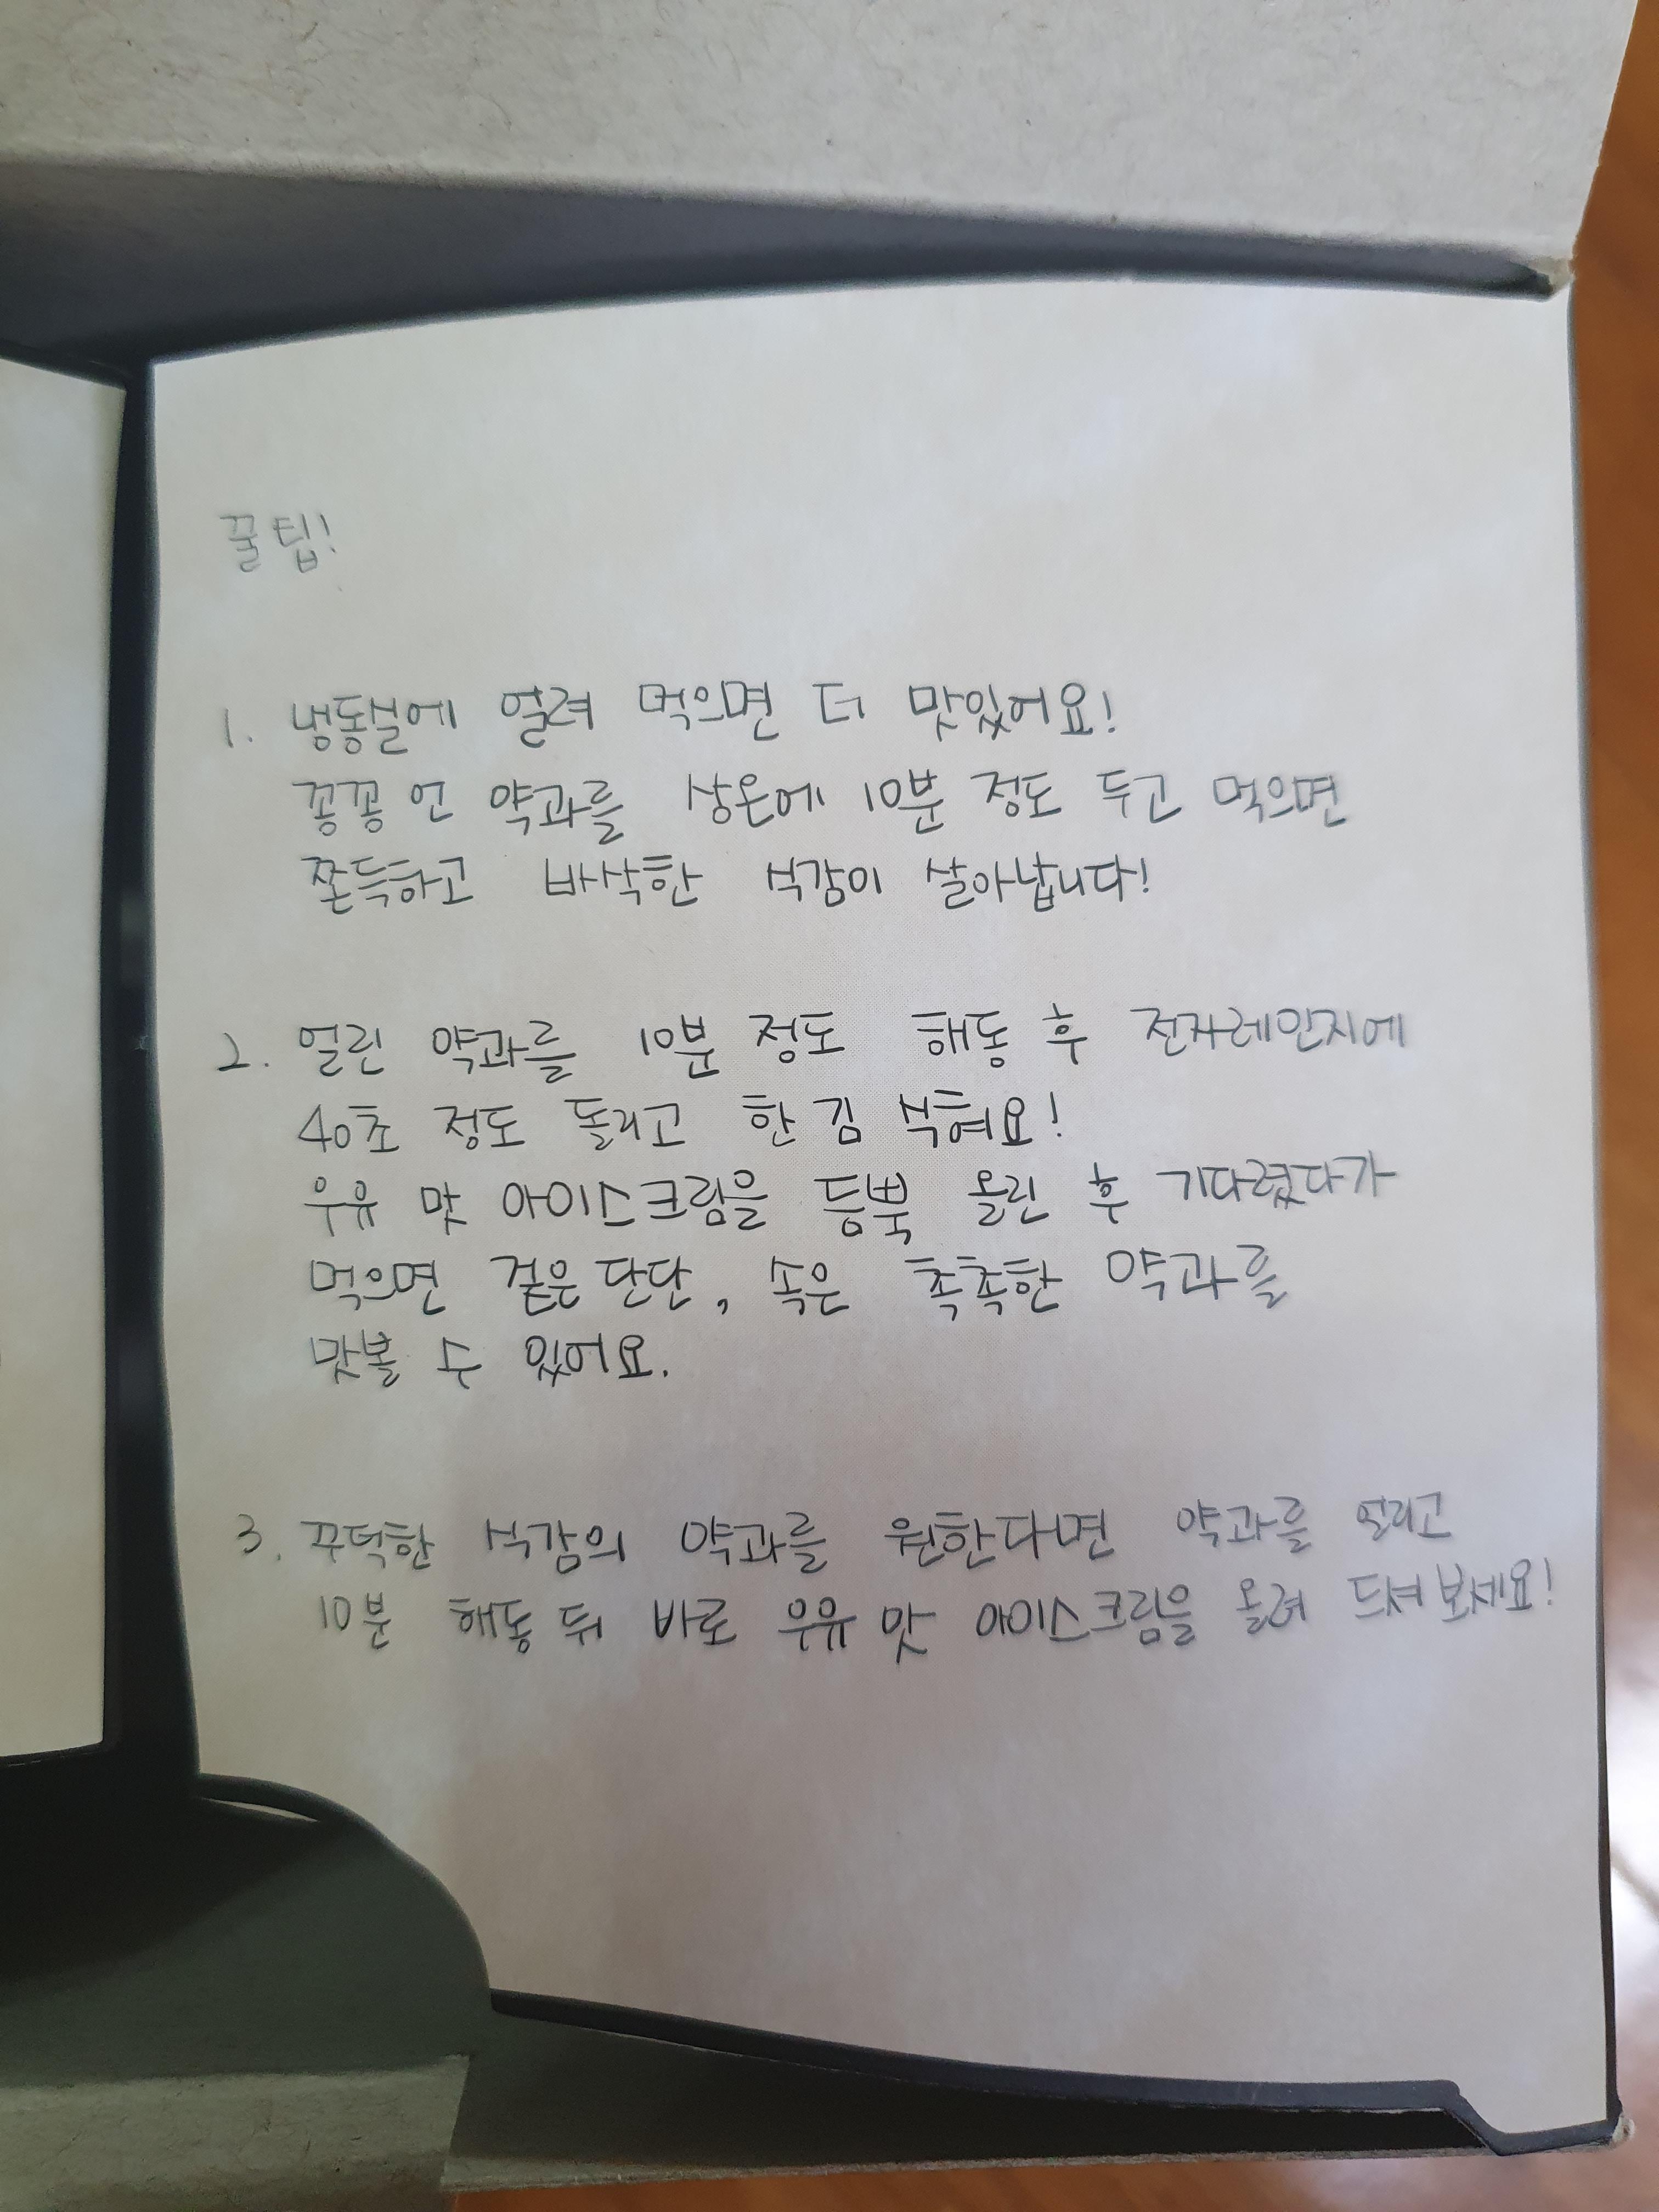 꿀팁!
1. 냉동실에 얼려 먹으면 더 맛있어요!
꽁꽁 언 약과를 상온에 10분 정도 두고 먹으면
쫀득하고 바삭한 식감이 살아납니다!
2. 얼린 약과를 10분 정도 해동 후 전자레인지에
40초 정도 돌리고 한 김 식혀요!
우유 맛 아이스크림을 듬뿍 올린 후 기다렸다가
먹으면 겉은 단단, 속은 촉촉한 약과를
맛볼 수 있어요.
3. 꾸덕한 식감의 약과를 원한다면 약과를 얼리고
10분 해동 뒤 바로 우유 맛 아이스크림을 올려 드셔보세요!